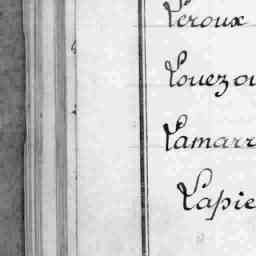 Leroux
Louezou
Lamarr
Lapie